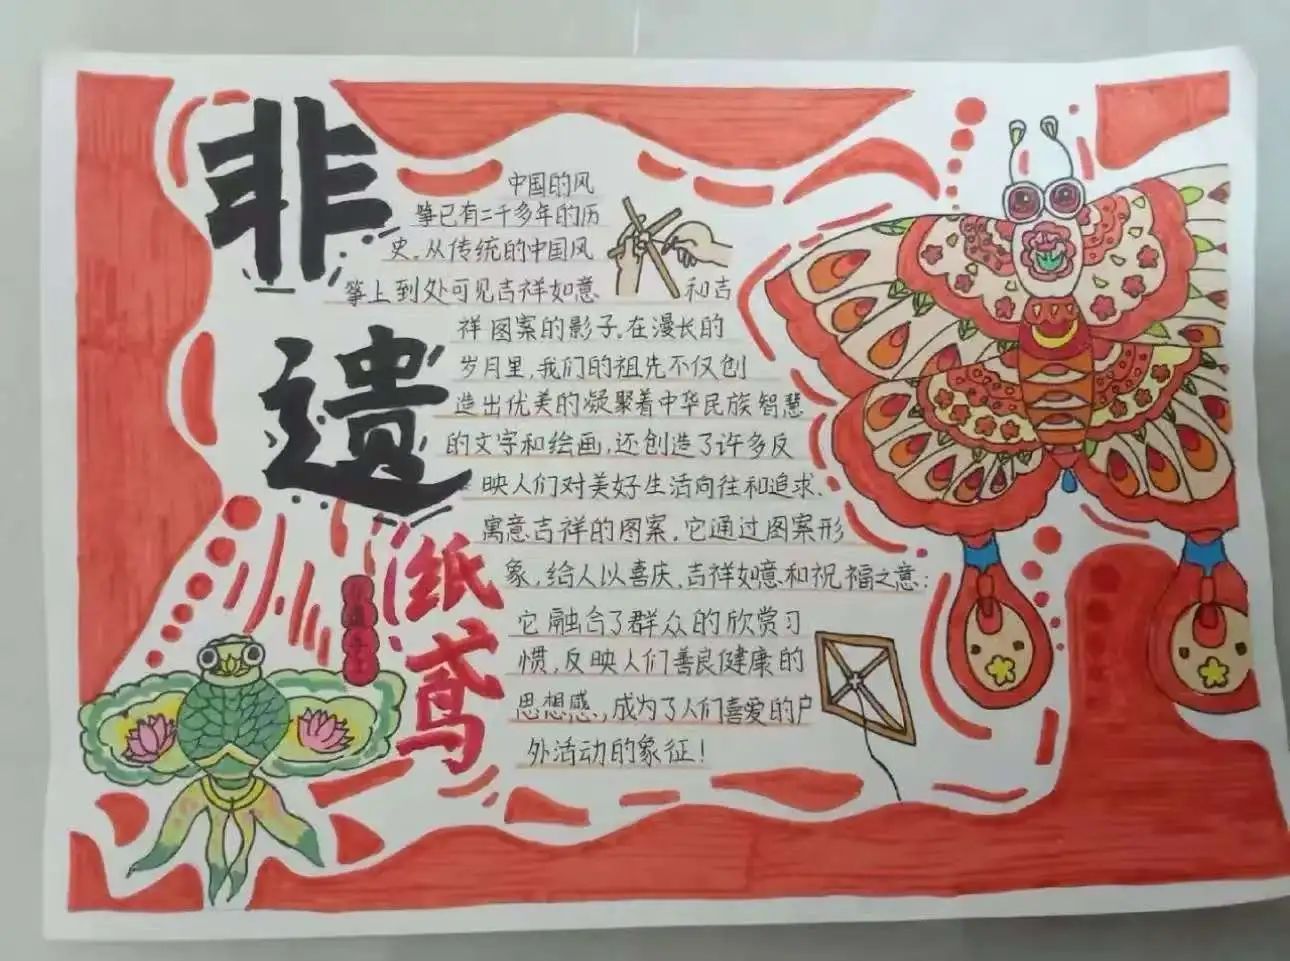 非
遗
纸
鸢
中国的风
筝已有二千多年的历
史。从传统的中国风
筝上到处可见吉祥如意
和吉
祥图案的影子。在漫长的
岁月里,我们的祖先不仅创
造出优美的凝聚着中华民族智慧
的文字和绘画,还创造了许多反
映人们对美好生活向往和追求、
寓意吉祥的图案。它通过图案形
象,给人以喜庆、吉祥如意和祝福之意;
它融合了群众的欣赏习
惯,反映人们善良健康的
思想感,成为了人们喜爱的户
外活动的象征!